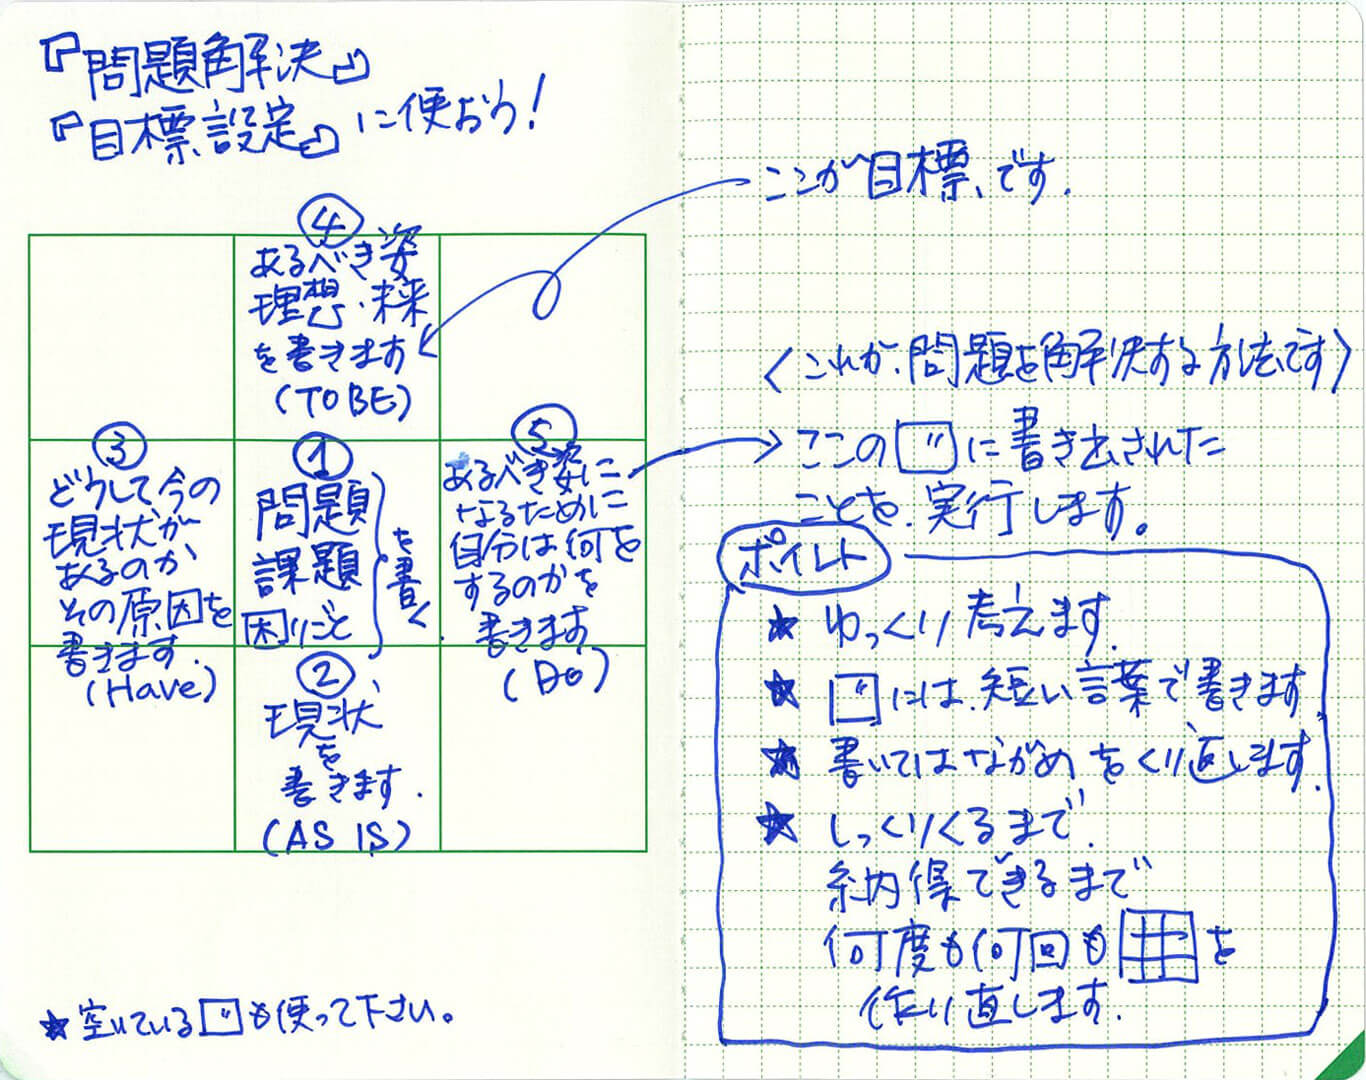 『問題解決』
『目標設定』に使おう!
④
あるべき姿
理想・未来
を書きます
(TO BE)
③
どうして今の
現状が
あるのか
その原因を
書きます.
(Have)
①
問題
課題
困りごと
を書く
⑤
あるべき姿に
なるために
自分は何を
するのかを
書きます
(Do)
②
現状
を
書きます.
(AS IS)
★空いている□も使って下さい。
ここが目標です.
〈これが問題を解決する方法です〉
ここの□に書き出された
ことを実行します。
ポイント
★ゆっくり考えます.
★□には短い言葉で書きます
★書いてはながめをくり返します.
★しっくりくるまで
納得できるまで
何度も何回も を
作り直します.